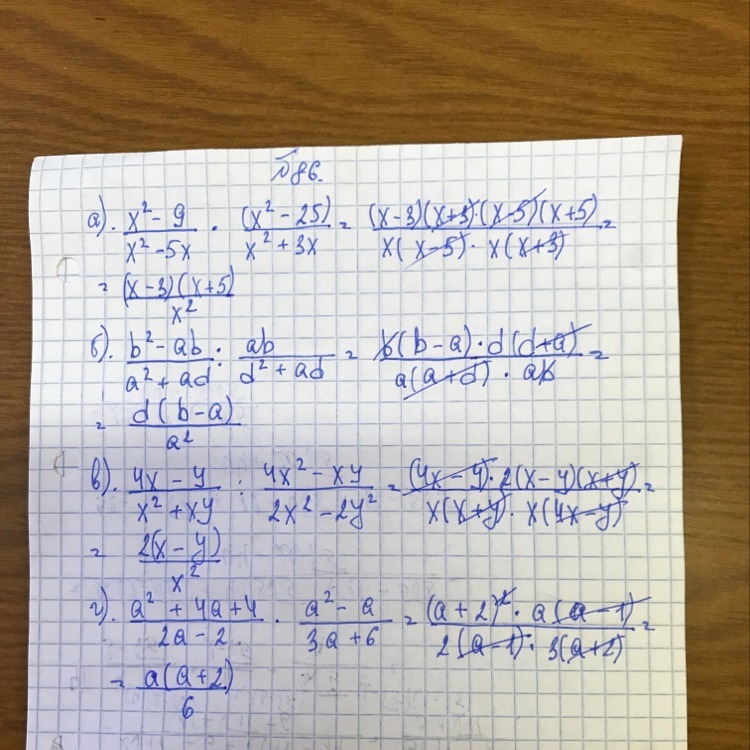 №86.
а). (x² - 9)/(x² - 5x) · (x² - 25)/(x² + 3x) = ((x-3)(x+3)·(x-5)(x+5))/(x(x-5) · x(x+3)) =
= ((x-3)(x+5))/x²
б). (b² - ab)/(a² + ad) : ab/(d² + ad) = (b(b-a)·d(d+a))/(a(a+d) · ab) =
= (d(b-a))/a²
в). (4x - y)/(x² + xy) : (4x² - xy)/(2x² - 2y²) = ((4x-y)·2(x-y)(x+y))/(x(x+y) · x(4x-y)) =
= (2(x-y))/x²
г). (a² + 4a + 4)/(2a - 2) · (a² - a)/(3a + 6) = ((a+2)² · a(a-1))/(2(a-1) · 3(a+2)) =
= (a(a+2))/6